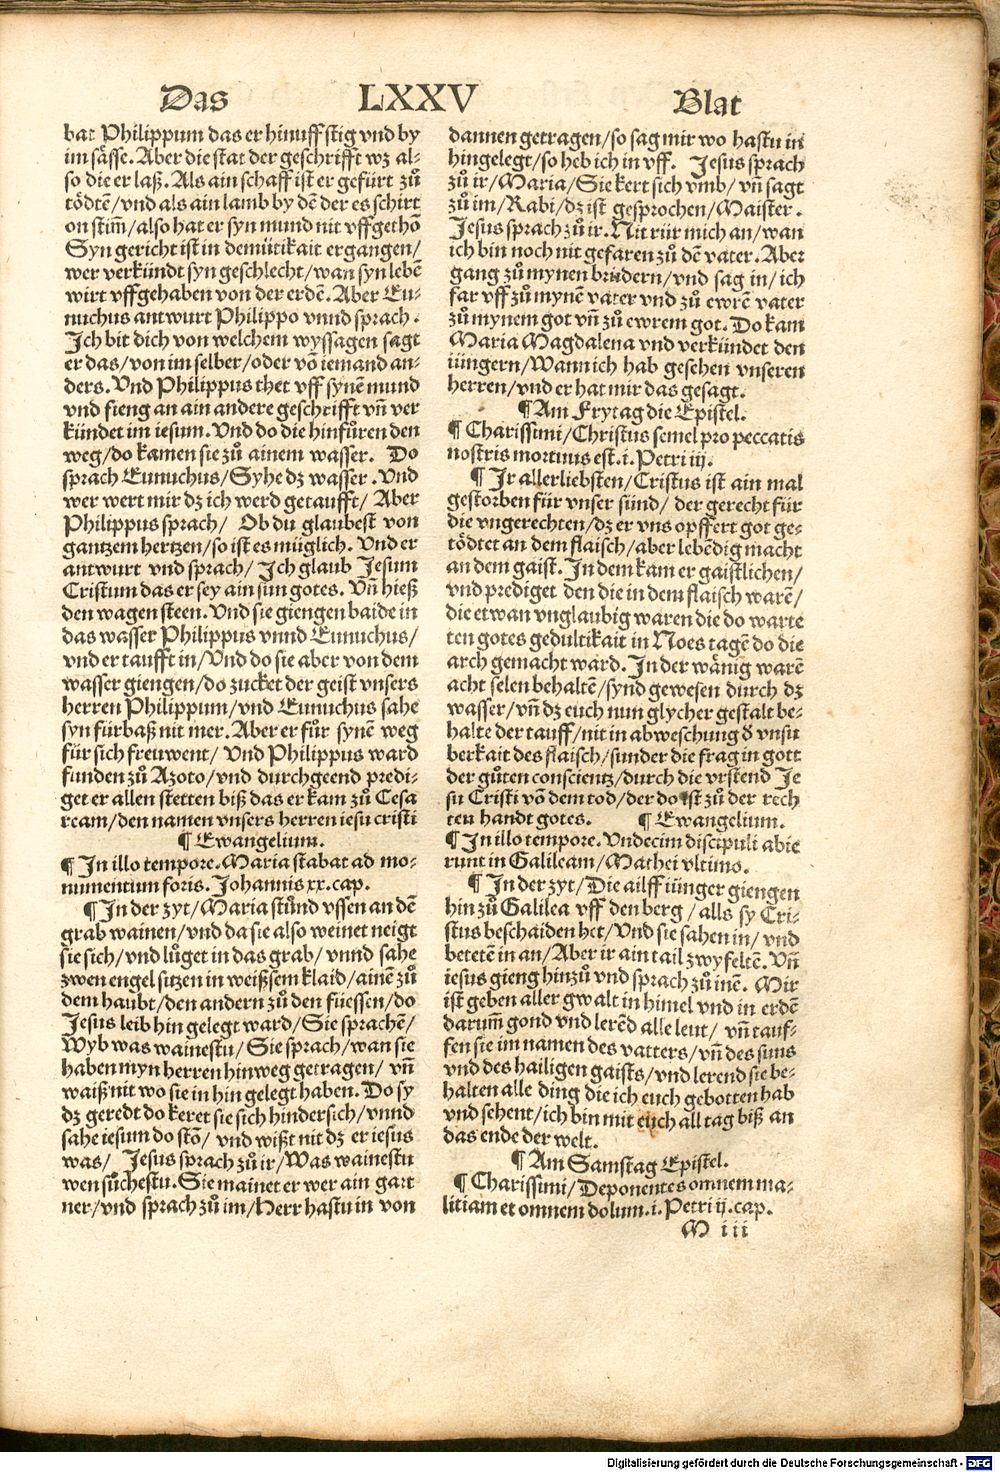 Das LXXV Blat
bat Philippum das er hinuff stig vnd by
im sässe. Aber die stat der geschrifft wz al⸗
so die er laß. Als ain schaff ist er gefürt zů
tödtē/vnd als ain lamb by dē der es schirt
on stim̄/also hat er syn mund nit vffgethō
Syn gericht ist in demütikait ergangen/
wer verkündt syn geschlecht/wan syn lebē
wirt vffgehaben von der erdē. Aber Eu⸗
nuchus antwurt Philippo vnnd sprach.
Ich bit dich von welchem wyssagen sagt
er das/von im selber/oder vō iemand an⸗
ders. Vnd Philippus thet vff synē mund
vnd fieng an ain andere geschrifft vn̄ ver
kündet im iesum. Vnd do die hinfůren den
weg/do kamen sie zů ainem wasser. Do
sprach Eunuchus/Syhe dz wasser. Vnd
wer wert mir dz ich werd getaufft/Aber
Philippus sprach/ Ob du glaubest von
gantzem hertzen/so ist es müglich. Vnd er
antwurt vnd sprach/Ich glaub Jesum
Cristum das er sey ain sun gotes. Vn̄ hieß
den wagen steen. Vnd sie giengen baide in
das wasser Philippus vnnd Eunuchus/
vnd er taufft in/Vnd do sie aber von dem
wasser giengen/do zucket der geist vnsers
herren Philippum/vnd Eunuchus sahe
syn fürbaß nit mer. Aber er fůr synē weg
für sich freuwent/ Vnd Philippus ward
funden zů Azoto/vnd durchgeend predi⸗
get er allen stetten biß das er kam zů Cesa
ream/den namen vnsers herren iesu cristi
¶ Ewangelium.
¶ In illo tempore. Maria stabat ad mo⸗
numentum foris. Johannis xx. cap.
¶ In der zyt/Maria stůnd vssen an dē
grab wainen/vnd da sie also weinet neigt
sie sich/vnd lůget in das grab/vnnd sahe
zwen engel sitzen in weißsem klaid/ainē zů
dem haubt/den andern zů den füessen/do
Jesus leib hin gelegt ward/Sie sprachē/
Wyb was wainestu/Sie sprach/wan sie
haben myn herren hinweg getragen/vn̄
waiß nit wo sie in hin gelegt haben. Do sy
dz geredt do keret sie sich hindersich/vnnd
sahe iesum do stō/ vnd wißt nit dz er iesus
was/ Jesus sprach zů ir/Was wainestu
wen sůchestu. Sie mainet er wer ain gart
ner/vnd sprach zů im/Herr hastu in von
dannen getragen/so sag mir wo hastu in
hingelegt/so heb ich in vff. Jesus sprach
zů ir/Maria/Sie kert sich vmb/vn̄ sagt
zů im/Rabi/dz ist gesprochen/Maister.
Jesus sprach zů ir. Nit rür mich an/wan
ich bin noch nit gefaren zů dē vater. Aber
gang zů mynen brüdern/vnd sag in/ich
far vff zů mynē vater vnd zů ewrē vater
zů mynem got vn̄ zů ewrem got. Do kam
Maria Magdalena vnd verkündet den
iüngern/Wann ich hab gesehen vnseren
herren/vnd er hat mir das gesagt.
¶ Am Frytag die Epistel.
¶ Charissimi/Christus semel pro peccatis
nostris mortuus est. i. Petri iij.
¶ Ir allerliebsten/Cristus ist ain mal
gestorben für vnser sünd/ der gerecht für
die vngerechten/dz er vns opffert got ge⸗
tödtet an dem flaisch/aber lebēdig macht
an dem gaist. In dem kam er gaistlichen/
vnd prediget den die in dem flaisch warē/
die etwan vnglaubig waren die do warte
ten gotes gedultikait in Noes tagē do die
arch gemacht ward. In der wänig warē
acht selen behaltē/synd gewesen durch dz
wasser/vn̄ dz euch nun glycher gestalt be⸗
halte der tauff/nit in abweschung d̄ vnsu
berkait des flaisch/sunder die frag in gott
der gůten conscientz/durch die vrstend Je
su Cristi vō dem tod/der do ist zů der rech
ten handt gotes. ¶ Ewangelium.
¶ In illo tempore. Vndecim discipuli abie
runt in Galileam/Mathei vltimo.
¶ In der zyt/Die ailff iünger giengen
hin zů Galilea vff den berg/alls sy Cri⸗
stus beschaiden het/Vnd sie sahen in/vnd
betetē in an/Aber ir ain tail zwyfeltē. Vn̄
iesus gieng hinzů vnd sprach zů inē. Mir
ist geben aller gwalt in himel vnd in erdē
darum̄ gond vnd lerēd alle leut/ vn̄ tauf⸗
fen sie im namen des vatters/vn̄ des suns
vnd des hailigen gaists/vnd lerend sie be⸗
halten alle ding die ich euch gebotten hab
vnd sehent/ich bin mit euch all tag biß an
das ende der welt.
¶ Am Samstag Epistel.
¶ Charissimi/Deponentes omnem ma⸗
litiam et omnem dolum. i. Petri ij. cap.
M iii
Digitalisierung gefördert durch die Deutsche Forschungsgemeinschaft - DFG